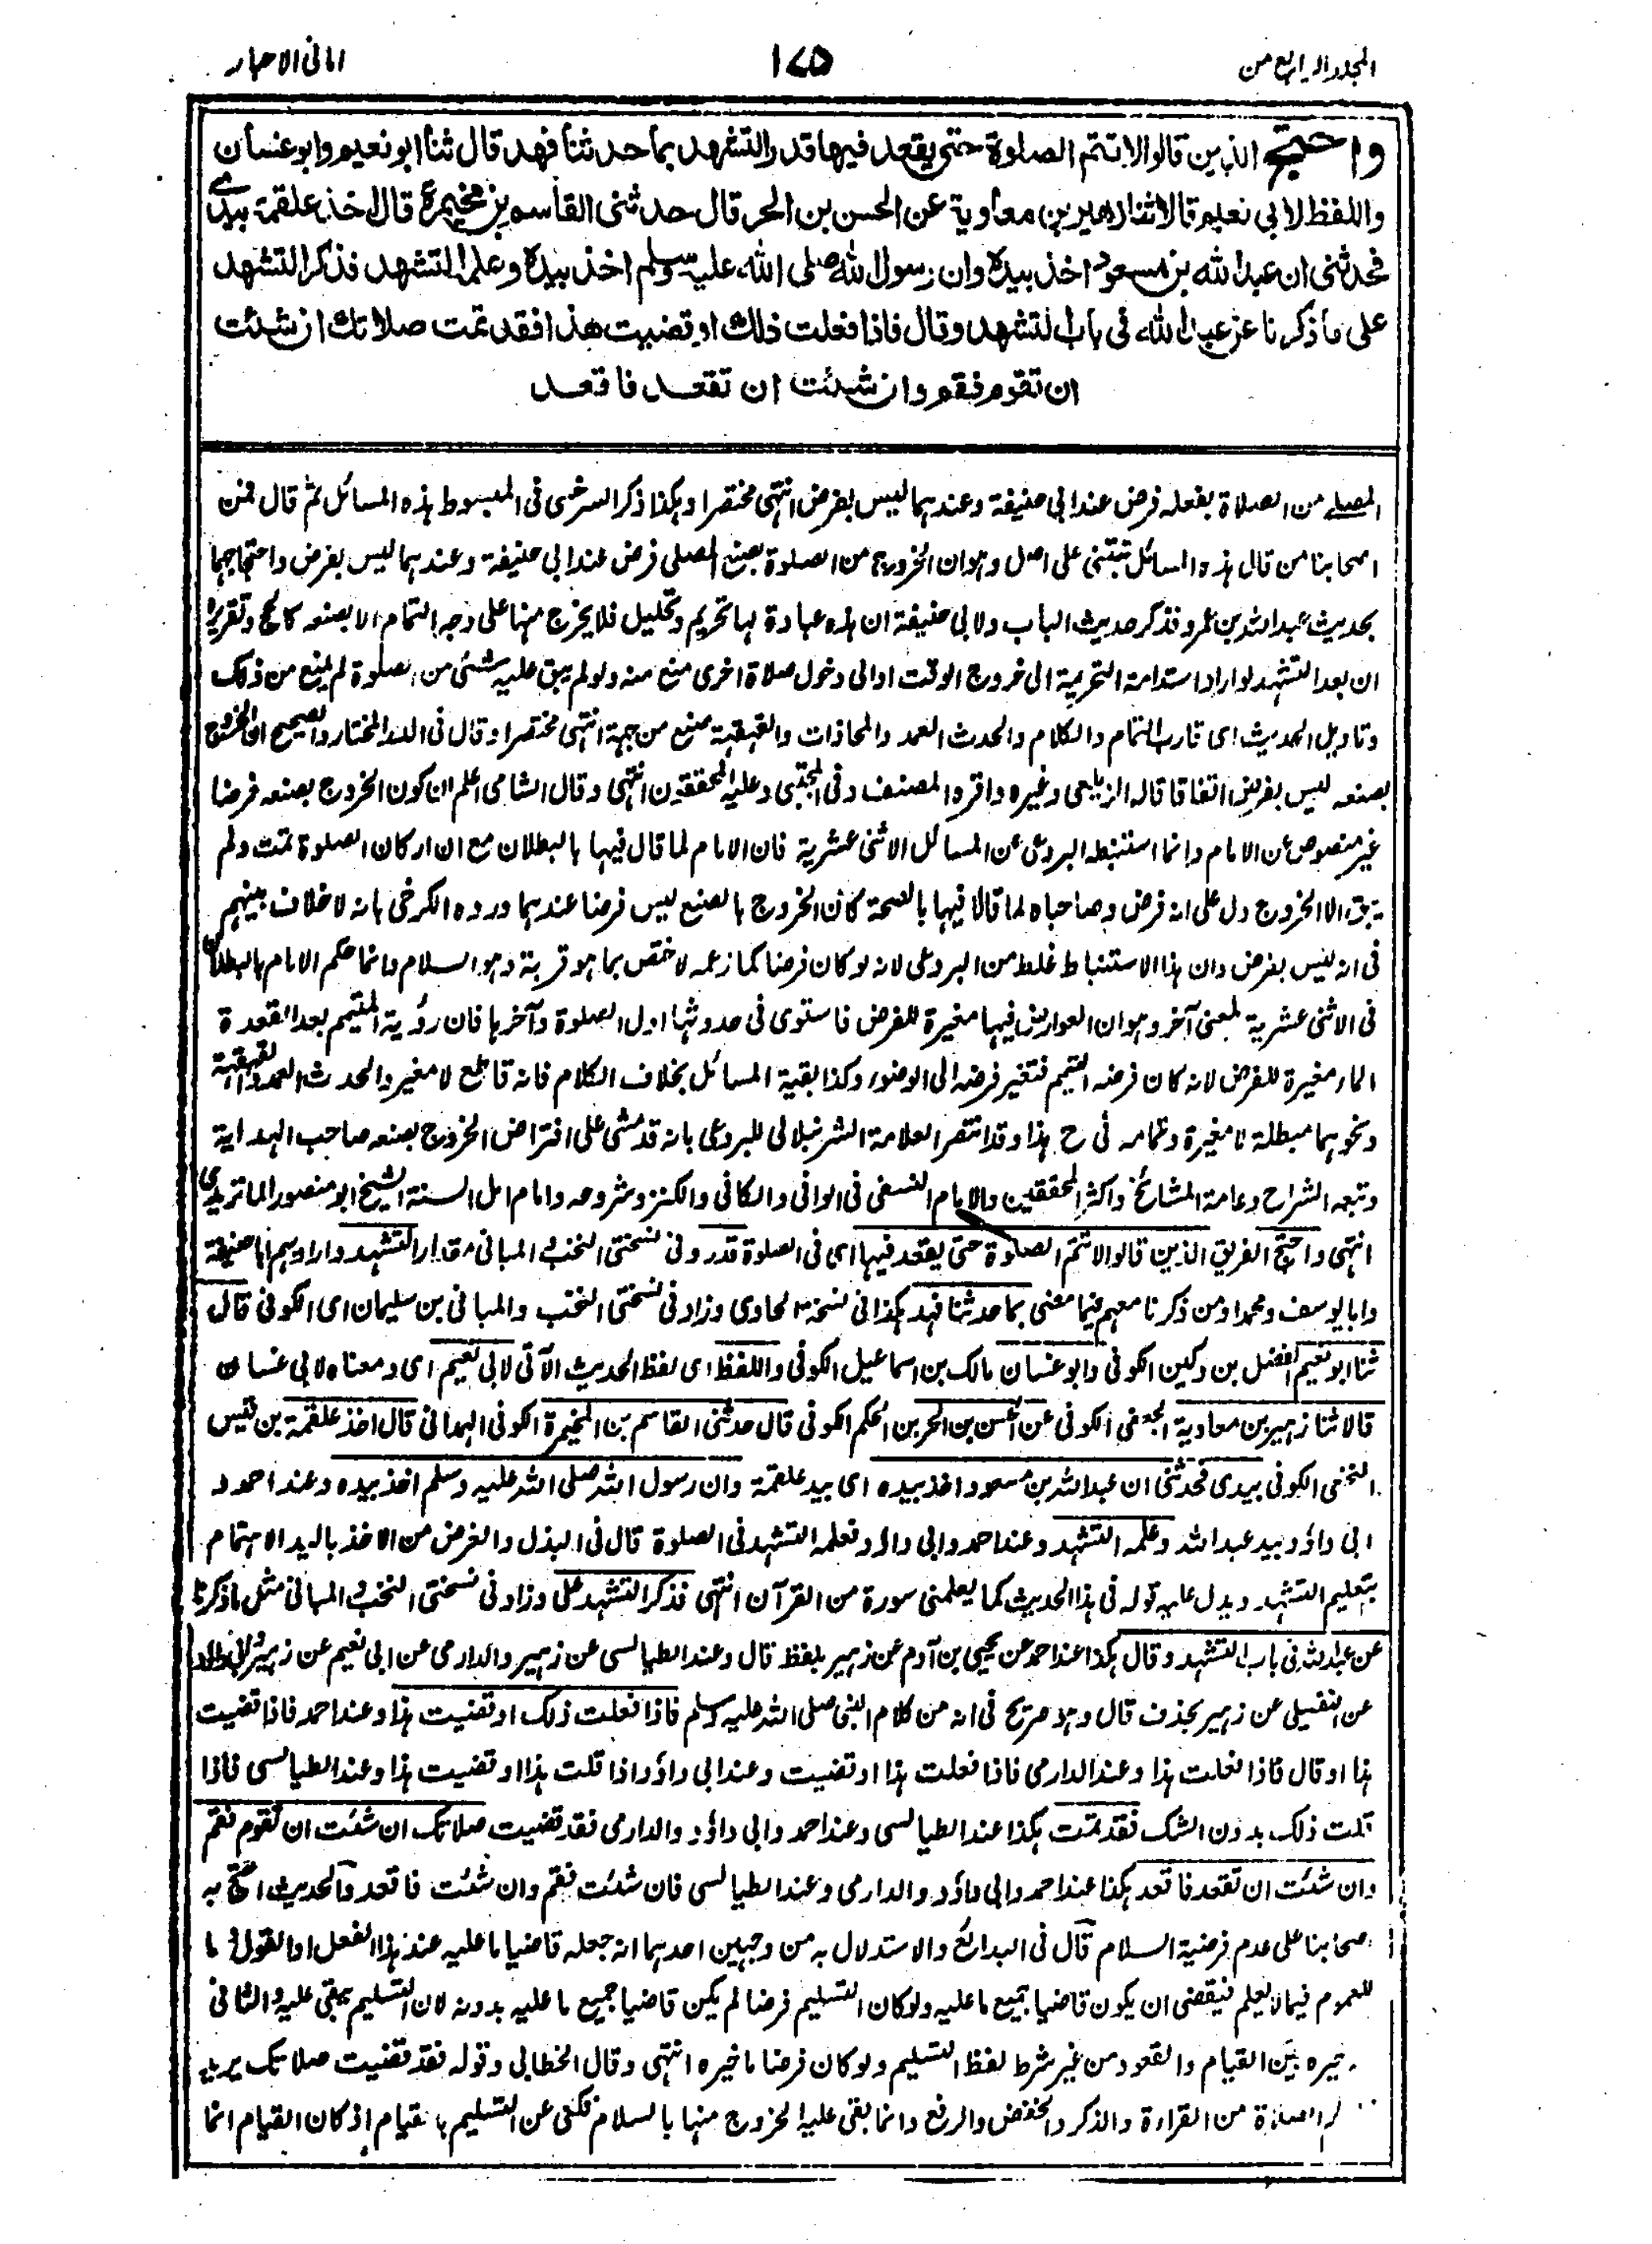 المجلد الرابع من
١٧٥
امانی الاحبار
واحتج الذين قالوا لا تتم الصلوة حتى يقعد فيها قدر التشهد بما حدثنا فهد قال ثنا ابو نعيم وابو غسان
واللفظ لابي نعيم قالا ثنا زهير بن معاوية عن الحسن بن الحر قال حدثنى القاسم بن مخيمرة قال اخذ علقمة بيدے
فحدثنى ان عبد الله بن مسعود اخذ بيده وان رسول الله صلى الله عليه وسلم اخذ بيده وعلمه التشهد فذكر التشهد
على ما ذكرنا عن عبد الله فى باب التشهد وقال فاذا فعلت ذلك او قضيت هذا فقد تمت صلاتك ان شئت
ان تقوم فقم وان شئت ان تقعد فاقعد
المصلے من الصلاة بفعله فرض عند ابی حنیفة وعندہما لیس بفرض انتہی مختصرا وہکذا ذکر السرخسی فی المبسوط ہذہ المسائل ثم قال فمن
اصحابنا من قال ہذہ المسائل تبتنی علی اصل وہو ان الخروج من الصلوة بصنع المصلی فرض عند ابی حنیفة وعندہما لیس بفرض واحتجاجہما
بحدیث عبد اللہ بن عمرو فذکر حدیث الباب ولابی حنیفة ان ہذہ عبادة لہا تحریم وتحلیل فلا یخرج منہا علی وجہ التمام الا بصنعہ کالحج وتقریرہ
ان بعد التشہد لو اراد استدامة التحریمة الی خروج الوقت او الی دخول صلاة اخری منع منہ ولو لم یبق علیہ شئی من الصلوة لم یمنع من ذلک
وتاویل الحدیث ای قارب التمام والکلام والحدث العمد والمحاذات والقہقہة صنع من جہتہ انتہی مختصرا وقال فی الدر المختار والصحیح ان الخروج
بصنعہ لیس بفرض اتفاقا قالہ الزیلعی وغیرہ واقرہ المصنف وفی المجتبی وعلیہ المحققون انتہی وقال الشامی اعلم ان کون الخروج بصنعہ فرضا
غیر منصوص عن الامام وانما استنبطہ البردعی عن المسائل الاثنی عشریة فان الامام لما قال فیہا بالبطلان مع ان ارکان الصلوة تمت ولم
یبق الا الخروج دل علی انہ فرض وصاحباہ لما قالا فیہا بالصحة کان الخروج بالصنع لیس فرضا عندہما وردہ الکرخی بانہ لا خلاف بینہم
فی انہ لیس بفرض وان ہذا الاستنباط غلط من البردعی لانہ لو کان فرضا کما زعمہ لاختص بما ہو قربة وہو السلام وانما حکم الامام بالبطلان
فی الاثنی عشریة لمعنی آخر وہو ان العوارض فیہا مغیرة للفرض فاستوی فی حدوثہا اول الصلوة وآخرہا فان رؤیة المتیمم بعد القعدة
الماء مغیرة للفرض لانہ کان فرضہ التیمم فتغیر فرضہ الی الوضوء وکذا بقیة المسائل بخلاف الکلام فانہ قاطع لا مغیر والحدث العمد والقہقہة
ونحوہما مبطلة لا مغیرة وتمامہ فی ح ہذا وقد انتصر العلامة الشرنبلالی للبردعی بانہ قد مشی علی افتراض الخروج بصنعہ صاحب الہدایة
وتبعہ الشراح وعامة المشائخ واکثر المحققین والامام النسفی فی الوافی والکافی والکنز وشروحہ وامام اہل السنة الشیخ ابو منصور الماتریدی
انتہی واحتج الفریق الذین قالوا لا تتم الصلوة حتی یقعد فیہا ای فی الصلوة قدر وفی نسختی النخب والمبانی مقدار التشہد واراد بہم ابا حنیفة
وابا یوسف ومحمدا ومن ذکرنا معہم فیما مضی بما حدثنا فہد ہکذا فی نسخة الحاوی وزاد فی نسختی النخب والمبانی بن سلیمان ای الکوفی قال
ثنا ابو نعیم الفضل بن دکین الکوفی وابو غسان مالک بن اسماعیل الکوفی واللفظ ای لفظ الحدیث الآتی لابی نعیم ای ومعناہ لابی غسان
قالا ثنا زہیر بن معاویة الجعفی الکوفی عن الحسن بن الحر بن الحکم الکوفی قال حدثنی القاسم بن المخیمرة الکوفی الہمدانی قال اخذ علقمة بن قیس
النخعی الکوفی بیدی فحدثنی ان عبد اللہ بن مسعود اخذ بیدہ ای بید علقمة وان رسول اللہ صلی اللہ علیہ وسلم اخذ بیدہ وعند احمد و
ابی داؤد بید عبد اللہ وعلمہ التشہد وعند احمد وابی داؤد فعلمہ التشہد فی الصلوة قال فی البذل والغرض من الاخذ بالید الاہتمام
بتعلیم التشہد ویدل علیہ قولہ فی ہذا الحدیث کما یعلمنی سورة من القرآن انتہی فذکر التشہد علی وزاد فی نسختی النخب والمبانی مثل ما ذکرنا
عن عبد اللہ فی باب التشہد وقال ہکذا عند احمد عن یحیی بن آدم عن زہیر بلفظ قال وعند الطیالسی عن زہیر والدارمی عن ابی نعیم عن زہیر وابی داؤد
عن النفیلی عن زہیر بحذف قال وہو صریح فی انہ من کلام النبی صلی اللہ علیہ وسلم فاذا فعلت ذلک او قضیت ہذا وعند احمد فاذا قضیت
ہذا او قال فاذا فعلت ہذا وعند الدارمی فاذا فعلت ہذا او قضیت وعند ابی داؤد اذا قلت ہذا او قضیت ہذا وعند الطیالسی فاذا
قلت ذلک بدون الشک فقد تمت ہکذا عند الطیالسی وعند احمد وابی داؤد والدارمی فقد قضیت صلاتک ان شئت ان تقوم فقم
وان شئت ان تقعد فاقعد ہکذا عند احمد وابی داؤد والدارمی وعند الطیالسی فان شئت فقم وان شئت فاقعد والحدیث احتج بہ
اصحابنا علی عدم فرضیة السلام قال فی البدائع والاستدلال بہ من وجہین احدہما انہ جعلہ قاضیا ما علیہ عند ہذا الفعل او القول وما
للعموم فیما لا یعلم فیقضی ان یکون قاضیا جمیع ما علیہ ولو کان التسلیم فرضا لم یکن قاضیا جمیع ما علیہ بدونہ لان التسلیم یبقی علیہ والثانی
خیرہ بین القیام والقعود من غیر شرط لفظ التسلیم ولو کان فرضا ما خیرہ انتہی وقال الخطابی وقولہ فقد قضیت صلاتک یرید
الصلاة من القراءة والذکر والخفض والرفع وانما بقی علیہ الخروج منہا بالسلام فکنی عن التسلیم بالقیام اذ کان القیام انما